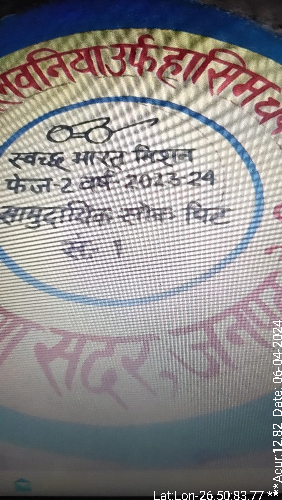 लवनिया उर्फ हासिम
स्वच्छ भारत मिशन
फेज-2 वर्ष 2023-24
सामुदायिक सोक पिट
सं. 1
सदर,
Lat:Lon-26.50:83.77 ***
Acur:12.82 Date: 06-04-2024